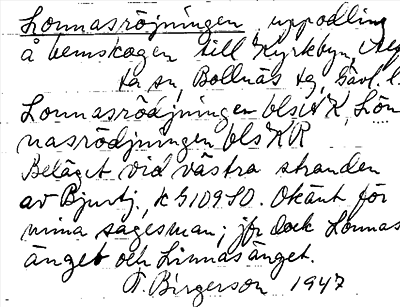 Lonnasröjningen uppodling
å hemskogen till Kyrkbyn,
ta sn, Bollnäs tg, Gävl. l.
Lonnasrödjningen blsAK, Lön
nasrödjningen blsKR
Beläget vid västra stranden
av Bjurtj, kG109SO. Okänt för
mina sagesmän; jfr dock Lonnas
änget och Linnasänget.
T. Birgerson 1947